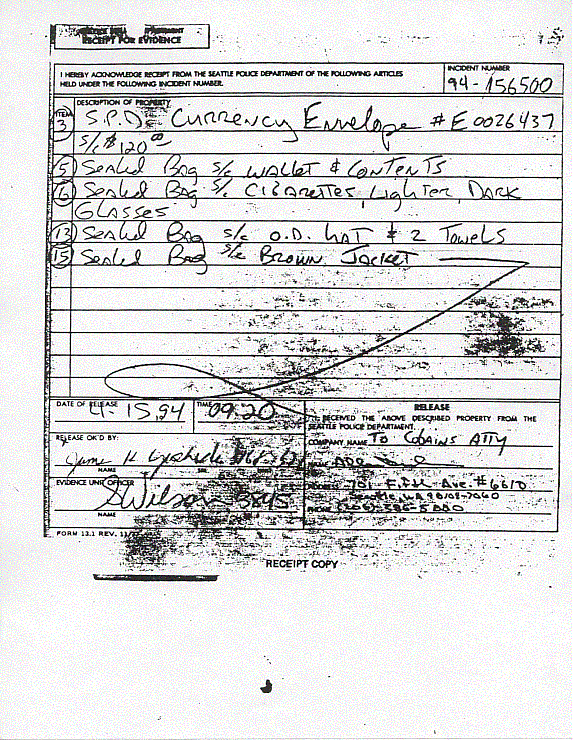 RECEIPT FOR EVIDENCE
I HEREBY ACKNOWLEDGE RECEIPT FROM THE SEATTLE POLICE DEPARTMENT OF THE FOLLOWING ARTICLES
HELD UNDER THE FOLLOWING INCIDENT NUMBER.
INCIDENT NUMBER
94-156500
ITEM DESCRIPTION OF PROPERTY
3 S.P.D. Currency Envelope #E0026437
S/C $120.00
5 Sealed Bag S/C WALLET & CONTENTS
6 Sealed Bag S/C CIGARETTES, Lighter, DARK
GLASSES
13 Sealed Bag S/C O.D. HAT & 2 Towels
15 Sealed Bag S/C BROWN JACKET
DATE OF RELEASE
4-15-94
TIME
09:20
RELEASE
RECEIVED THE ABOVE DESCRIBED PROPERTY FROM THE
SEATTLE POLICE DEPARTMENT.
COMPANY NAME TO COBAINS ATTY
RELEASE OK'D BY:
NAME
701 Fifth Ave. #6610
EVIDENCE UNIT OFFICER
S Wilson 3845
Seattle, WA
PHONE
NAME
FORM 13.1 REV.
RECEIPT COPY